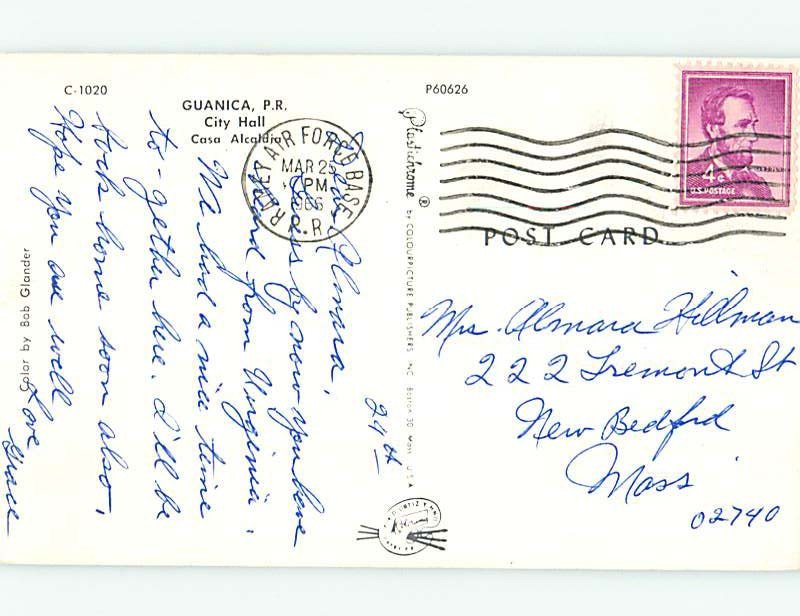 C-1020
GUANICA, P.R.
City Hall
Casa Alcaldia
24th
Dear Almara,
Guess by now you have
heard from Virginia.
We had a nice time
to-gether here. I'll be
back home soon also,
Hope you are well
Love
Grace
Color by Bob Glander
RAMEY AIR FORCE BASE
MAR 25
PM
1966
P.R.
P60626
Plastichrome ® BY COLOURPICTURE PUBLISHERS, INC. BOSTON 30, MASS. U.S.A.
4¢
U.S. POSTAGE
POST CARD
Mrs. Almara Hillman
222 Tremont St
New Bedford
Mass
02740